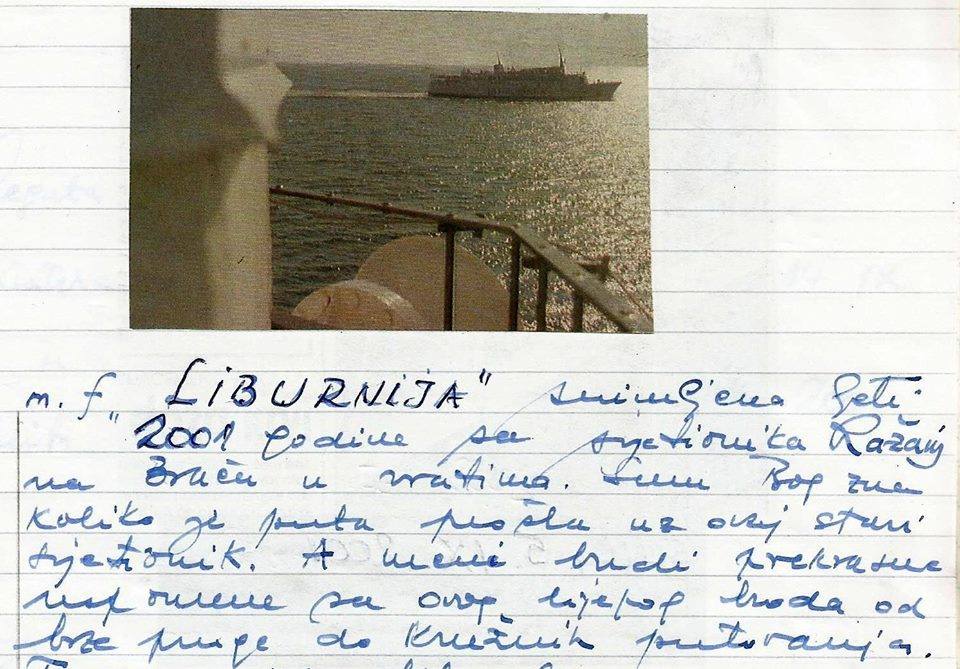 m. f "LIBURNIJA" snimljena ljeti
2001 godine sa svjetionika Ražanj
na Braču u vratima. Bog zna
koliko je puta prošla uz ovaj stari
svjetionik. A meni budi prekrasne
uspomene sa ovog lijepog broda od
brze pruge do kružnih putovanja.